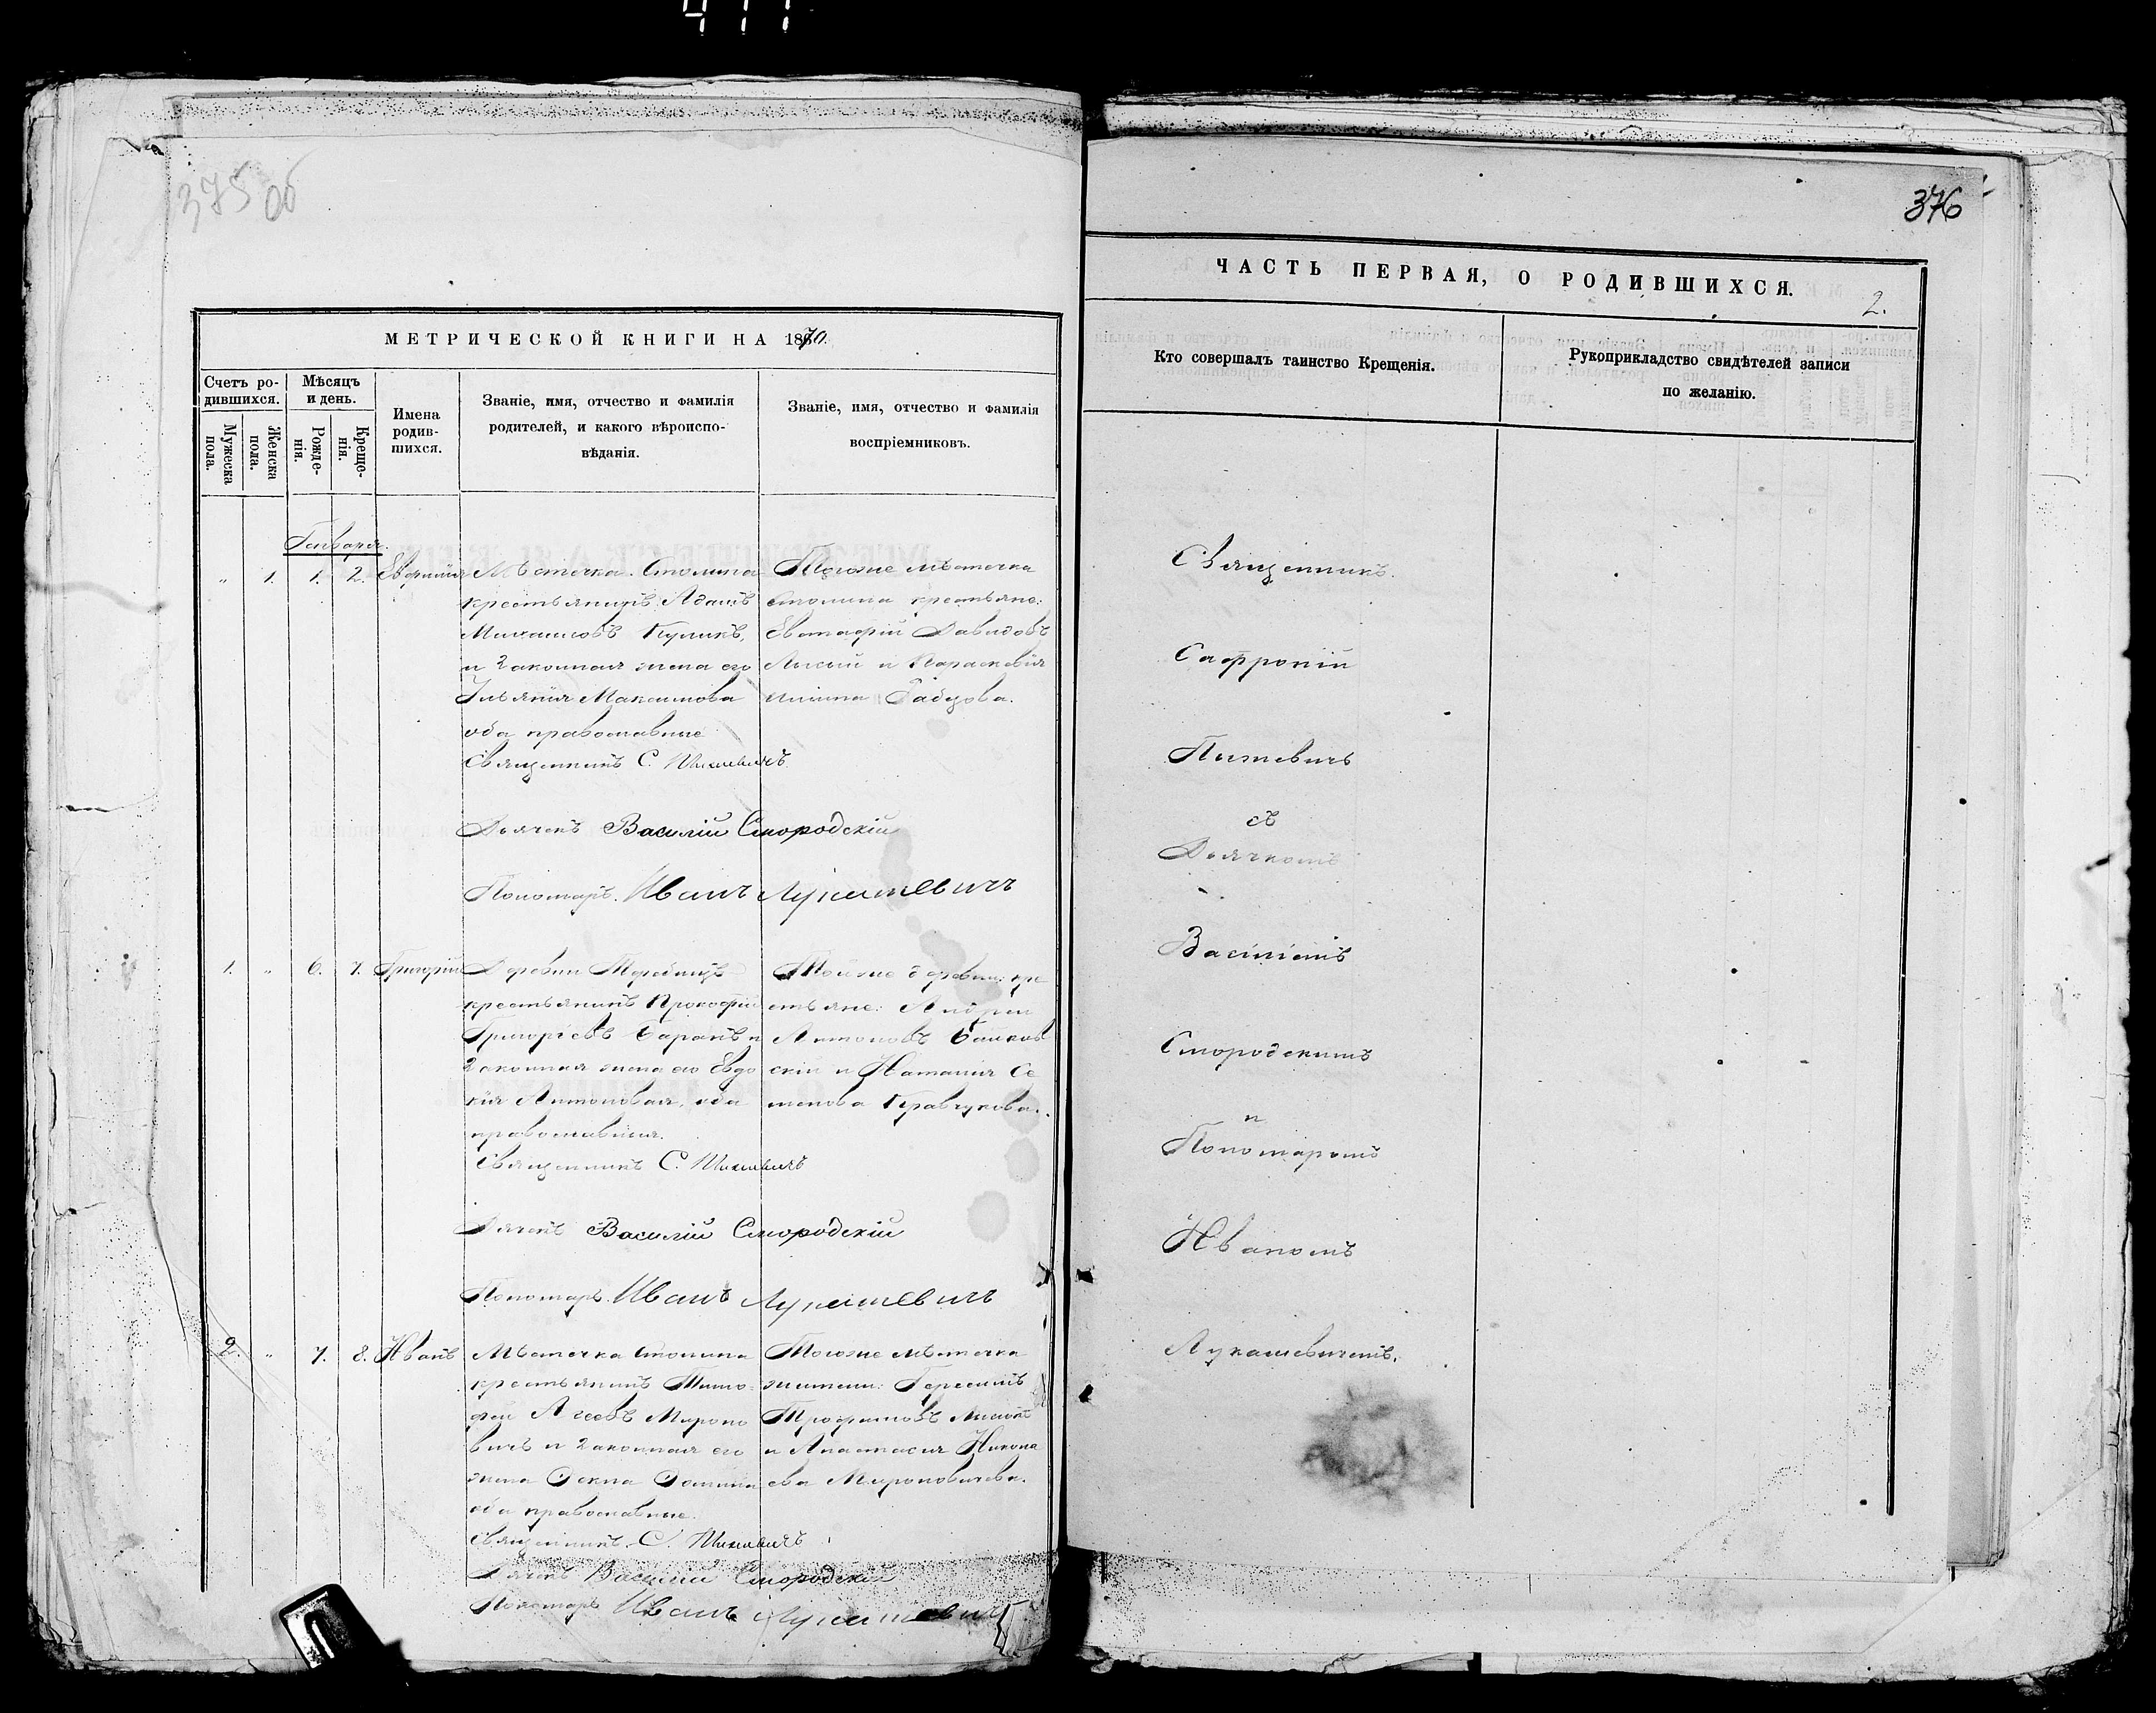 375 об
МЕТРИЧЕСКОЙ КНИГИ НА 1870.
Счетъ родившихся.
Мужеска пола.
Женска пола.
Мѣсяцъ и день.
Рожденія.
Крещенія.
Имена родившихся.
Званіе, имя, отчество и фамилія
родителей, и какого вѣроиспо-
вѣданія.
Званіе, имя, отчество и фамилія
воспріемниковъ.
Генваря.
" 1. 1. 2.
Мѣстечка Столина
крестьянинъ Адамъ
Михайловъ Куликъ,
и законная жена его
Ульянія Максимова
оба православные
Священникъ С.
Тогоже мѣстечка
Столина крестьяне:
Евстафій Давидовъ
и Параскевія
Дьячекъ Василій Смородскій
Пономарь Иванъ Лукашевичъ
1. " 6. 7. Григорій
Деревни
крестьянинъ Прокофій
Григорьевъ Баранъ и
законная жена его Евдо
кія Антоновая, оба
православныя.
Священникъ С.
Тойже деревни кре
стьяне: Андрей
Антоновъ
скій и Наталія Се
менова Кравчукова.
Дьячекъ Василій Смородскій
Пономарь Иванъ Лукашевичъ
2. " 7. 8. Иванъ
Мѣстечка Столина
крестьянинъ Тимо-
фей Мироно
вичъ и законная его
жена
оба православные.
Священникъ С.
Тогоже мѣстечка
жители: Герасимъ
Трофимовъ
и Анастасія Никола
ева Мироновичева.
Дьячекъ Василій Смородскій
Пономарь Иванъ Лукашевичъ
376
ЧАСТЬ ПЕРВАЯ, О РОДИВШИХСЯ.
2.
Кто совершалъ таинство Крещенія.
Рукоприкладство свидѣтелей записи
по желанію.
Священникъ
Сафроній
съ
Дьячкомъ
Василіемъ
Смородскимъ
и
Пономаремъ
Иваномъ
Лукашевичемъ.